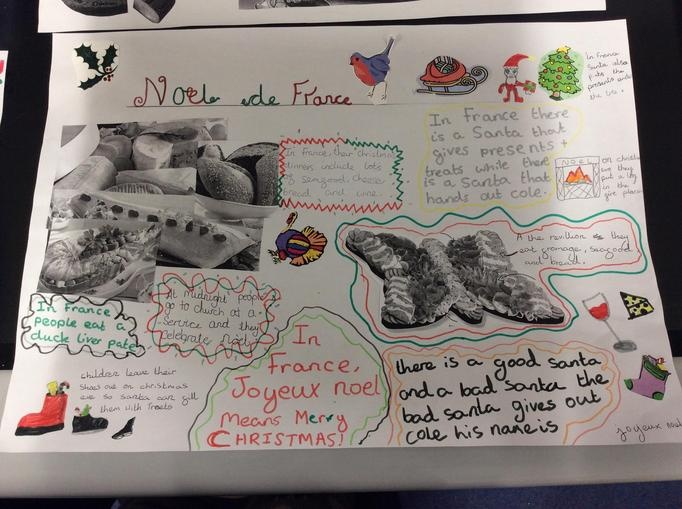 Noël de France
In France
Santa also
puts the
presents under
the tree.
In France, their Christmas
dinners include lots
of seagood, cheese
bread and wine.
In France there
is a Santa that
gives presents +
treats while there
is a Santa that
hands out cole.
NOEL
on christmas
eve they
put a log
in the
fire place
A the revillion they
eat fromage, seagood
and bread.
In France
people eat a
duck liver pate
At midnight people
go to church at a
service and they
celebrate noel
children leave their
shoes out on christmas
eve so santa can fill
them with treats
In
France,
Joyeux noel
Means Merry
CHRISTMAS!
there is a good santa
and a bad santa the
bad santa gives out
cole his name is
joyeux noel